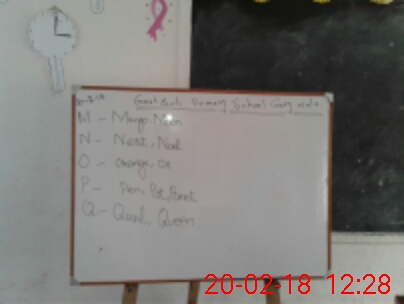 Primary School
M - Mango, Moon
N - Nest, Neck
O - orange, ox
P - Pen, Pot, Parrot
Q - Quail, Queen
20-02-18 12:28